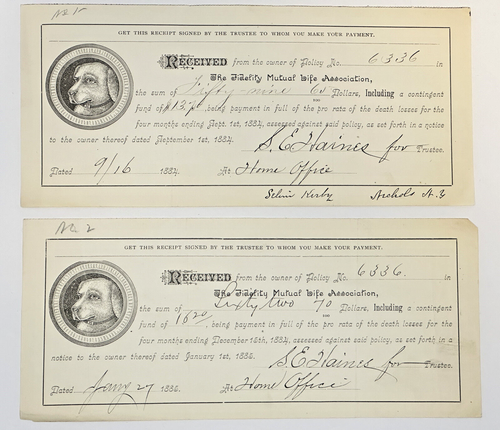 No 1
GET THIS RECEIPT SIGNED BY THE TRUSTEE TO WHOM YOU MAKE YOUR PAYMENT.
RECEIVED from the owner of Policy No. 6336 in
The Fidelity Mutual Life Association,
the sum of Fifty nine 60/100 Dollars, Including a contingent
fund of $13 20, being payment in full of the pro rata of the death losses for the
four months ending Sept. 1st, 1884, assessed against said policy, as set forth in a notice
to the owner thereof dated September 1st, 1884. S. E. Haines for Trustee.
Dated 9/16 1884. At Home Office
Kirby Nichols N.Y
No 2
GET THIS RECEIPT SIGNED BY THE TRUSTEE TO WHOM YOU MAKE YOUR PAYMENT.
RECEIVED from the owner of Policy No. 6336. in
The Fidelity Mutual Life Association,
the sum of Sixty two 70/100 Dollars, Including a contingent
fund of 18 20, being payment in full of the pro rata of the death losses for the
four months ending December 16th, 1884, assessed against said policy, as set forth in a
notice to the owner thereof dated January 1st, 1886. S. E. Haines for Trustee.
Dated Jany 27 1886. At Home Office